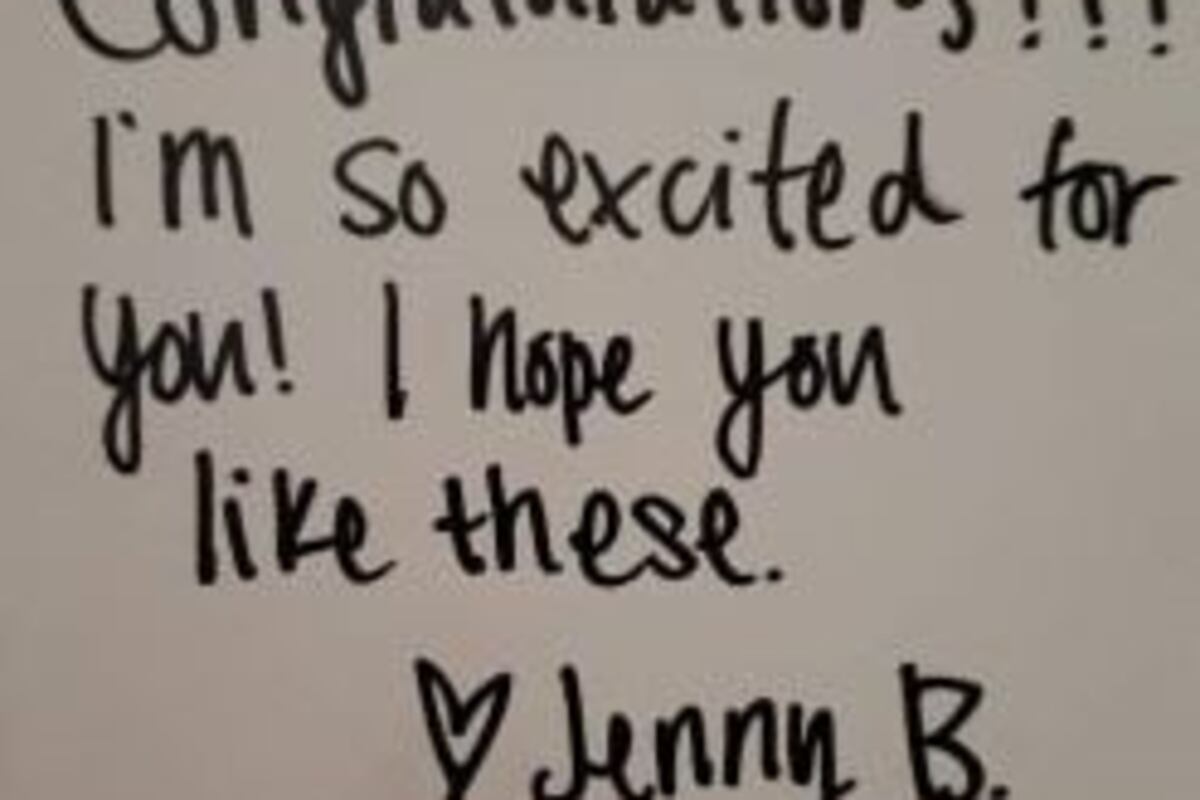 Congratulations!!!
I'm so excited for
you! I hope you
like these.
♡ Jenny B.